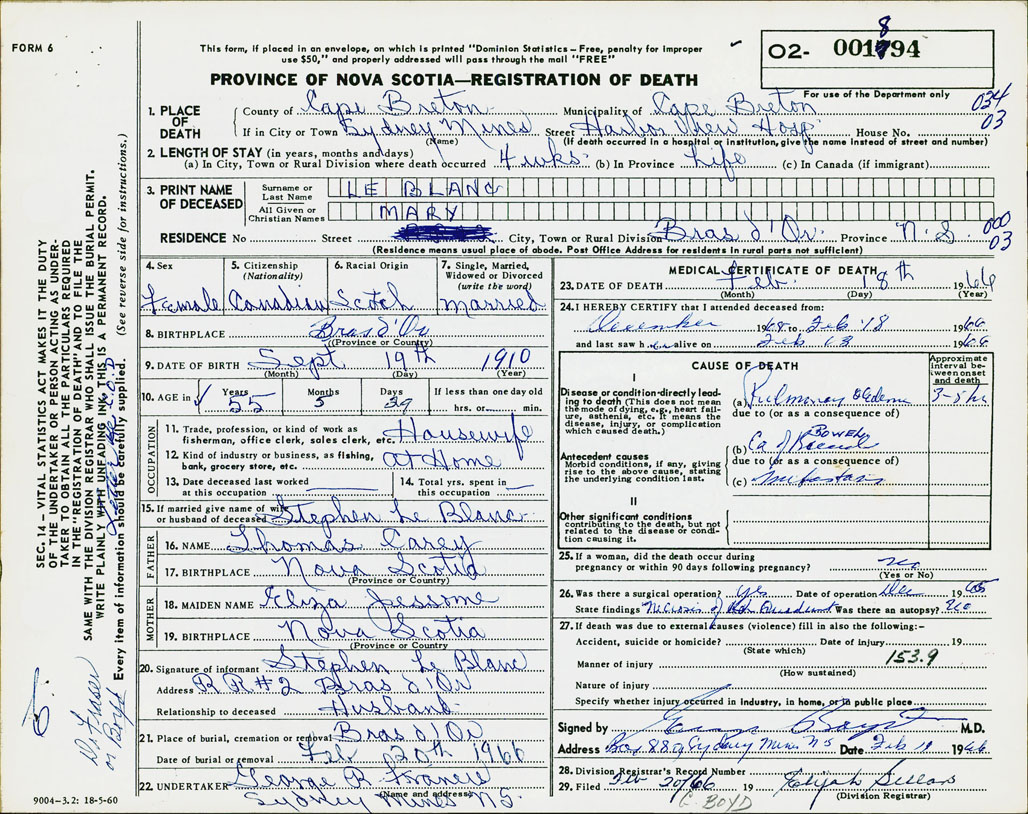 FORM 6
This form, if placed in an envelope, on which is printed "Dominion Statistics–Free, penalty for improper
use $50," and properly addressed will pass through the mail "FREE"
PROVINCE OF NOVA SCOTIA—REGISTRATION OF DEATH
02- 001894
8
For use of the Department only
034
03
1. PLACE OF DEATH
County of Cape Breton Municipality of Cape Breton
If in City or Town Sydney Mines Street Harbor View Hosp. House No.
(Name) (If death occurred in a hospital or institution, give the name instead of street and number)
2. LENGTH OF STAY (in years, months and days)
(a) In City, Town or Rural Division where death occurred 4 wks. (b) In Province Life (c) In Canada (if immigrant)
3. PRINT NAME OF DECEASED
Surname or Last Name LE BLANC
All Given or Christian Names MARY
RESIDENCE No Street City, Town or Rural Division Bras d'Or Province N.S.
000
03
(Residence means usual place of abode. Post Office Address for residents in rural parts not sufficient)
4. Sex Female
5. Citizenship (Nationality) Canadian
6. Racial Origin Scotch
7. Single, Married, Widowed or Divorced (write the word) Married
8. BIRTHPLACE Bras d'Or
(Province or Country)
9. DATE OF BIRTH Sept 19th 1910
(Month) (Day) (Year)
10. AGE in Years 55 Months 5 Days If less than one day old hrs. or min.
OCCUPATION
11. Trade, profession, or kind of work as fisherman, office clerk, sales clerk, etc. Housewife
12. Kind of industry or business, as fishing, bank, grocery store, etc. at Home
13. Date deceased last worked at this occupation
14. Total yrs. spent in this occupation
15. If married give name of wife or husband of deceased Stephen Le Blanc
FATHER
16. NAME Thomas Carey
17. BIRTHPLACE Nova Scotia
(Province or Country)
MOTHER
18. MAIDEN NAME Eliza Jessome
19. BIRTHPLACE Nova Scotia
(Province or Country)
20. Signature of informant Stephen Le Blanc
Address RR#2 Bras d'Or
Relationship to deceased Husband
21. Place of burial, cremation or removal Bras d'Or
Date of burial or removal Feb 20th 1966
22. UNDERTAKER George R. Francis
(Name and address) Sydney Mines NS.
9004–3.2: 18-5-60
MEDICAL CERTIFICATE OF DEATH
23. DATE OF DEATH Feb. 18th 1966
(Month) (Day) (Year)
24. I HEREBY CERTIFY that I attended deceased from:
December to Feb 18 1966
and last saw her alive on Feb 1966
CAUSE OF DEATH
Approximate interval between onset and death
I
Disease or condition directly leading to death (This does not mean the mode of dying, e.g., heart failure, asthenia, etc. It means the disease, injury, or complication which caused death.)
(a) Pulmonary Oedema 3-5 hr
due to (or as a consequence of)
Antecedent causes
Morbid conditions, if any, giving rise to the above cause, stating the underlying condition last.
BOWEL
(b) Ca. of
due to (or as a consequence of)
(c) Metastasis
II
Other significant conditions
contributing to the death, but not related to the disease or condition causing it.
25. If a woman, did the death occur during pregnancy or within 90 days following pregnancy? no
(Yes or No)
26. Was there a surgical operation? yes Date of operation Dec 1965
State findings Necrosis of Was there an autopsy? No
27. If death was due to external causes (violence) fill in also the following:-
Accident, suicide or homicide? Date of injury 19
(State which)
153.9
Manner of injury
(How sustained)
Nature of injury
Specify whether injury occurred in industry, in home, or in public place
Signed by M.D.
Address Box 880 Sydney Mines NS Date Feb 1966
28. Division Registrar's Record Number
29. Filed Feb 20/66 19 Elijah Sellars
(Division Registrar)
G. BOYD
SEC. 14 – VITAL STATISTICS ACT MAKES IT THE DUTY
OF THE UNDERTAKER OR PERSON ACTING AS UNDERTAKER
TO OBTAIN ALL THE PARTICULARS REQUIRED
IN THE "REGISTRATION OF DEATH" AND TO FILE THE
SAME WITH THE DIVISION REGISTRAR WHO SHALL ISSUE THE BURIAL PERMIT.
WRITE PLAINLY WITH UNFADING INK THIS IS A PERMANENT RECORD.
Every item of information should be carefully supplied. (See reverse side for instructions.)
D. Fraser
or Boyd